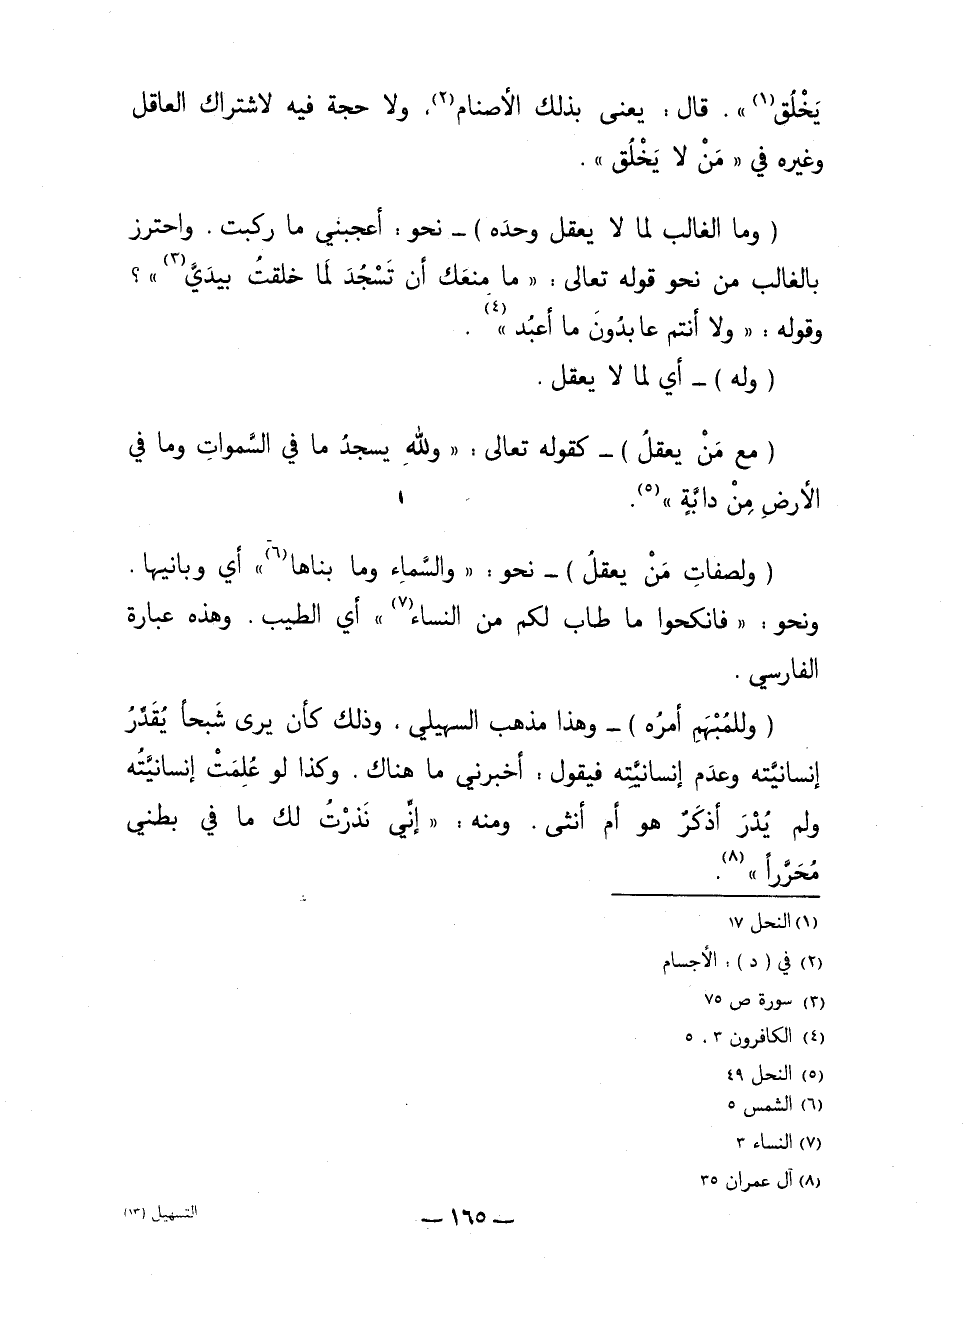 يَخْلُق(١)» . قال : يعنى بذلك الأصنام(٢)، ولا حجة فيه لاشتراك العاقل
وغيره في « مَنْ لا يَخْلُق » .
( وما الغالب لما لا يعقل وحدَه ) ــ نحو : أعجبني ما ركبت . واحترز
بالغالب من نحو قوله تعالى : « ما مِنعَك أن تَسْجُدَ لَما خلقتُ بيدَيَّ(٣)» ؟
وقوله : « ولا أنتم عابدُونَ ما أعبُد »(٤) .
( وله ) ــ أي لما لا يعقل .
( مع مَنْ يعقلُ ) ــ كقوله تعالى : « وللهِ يسجدُ ما في السَّمواتِ وما في
الأرضِ مِنْ دابَّةٍ »(٥).
( ولصفاتِ مَنْ يعقلُ ) ــ نحو : « والسَّماءِ وما بناها(٦)» أي وبانيها .
ونحو : « فانكحوا ما طاب لكم من النساء(٧) » أي الطيب . وهذه عبارة
الفارسي .
( وللمُبْهَمِ أمرُه ) ــ وهذا مذهب السهيلي ، وذلك كأن يرى شَبحاً يُقَدِّرُ
إنسانيَّته وعدَم إنسانيَّتِه فيقول : أخبرني ما هناك . وكذا لو عُلِمَتْ إنسانيَّتُه
ولم يُدْرَ أذكَرٌ هو أم أنثى . ومنه : « إنِّي نَذرْتُ لك ما في بطني
مُحَرَّراً »(٨).
(١) النحل ١٧
(٢) في ( د ) : الأجسام
(٣) سورة ص ٧٥
(٤) الكافرون ٣ ، ٥
(٥) النحل ٤٩
(٦) الشمس ٥
(٧) النساء ٣
(٨) آل عمران ٣٥
ــ ١٦٥ ــ
التسهيل (١٣)